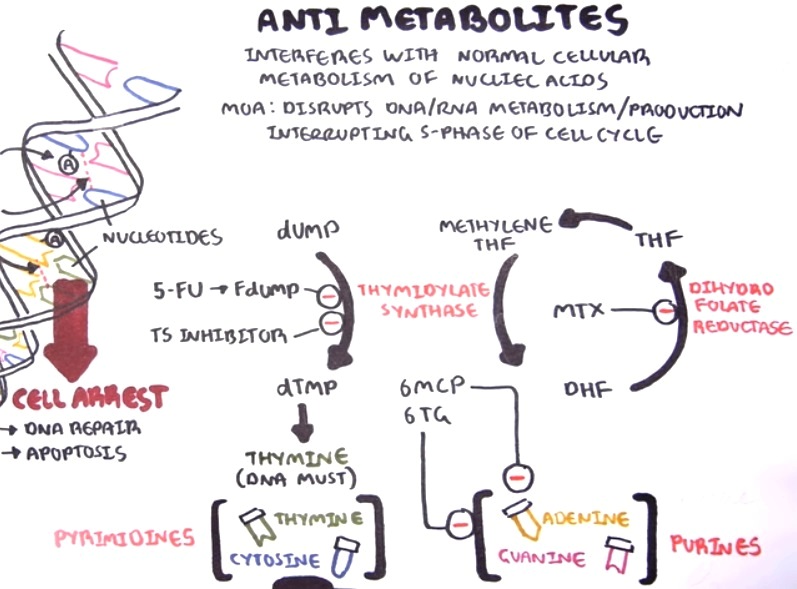 ANTI METABOLITES
INTERFERES WITH NORMAL CELLULAR
METABOLISM OF NUCLIEC ACIDS
MOA: DISRUPTS DNA/RNA METABOLISM/PRODUCTION
INTERRUPTING S-PHASE OF CELL CYCLE
A
A
NUCLEOTIDES
CELL ARREST
→ DNA REPAIR
→ APOPTOSIS
dUMP
5-FU → FdUMP
TS INHIBITOR
THYMIDYLATE
SYNTHASE
dTMP
THYMINE
(DNA MUST)
METHYLENE
THF
THF
MTX
DIHYDRO
FOLATE
REDUCTASE
DHF
6MCP
6TG
PYRIMIDINES
THYMINE
CYTOSINE
ADENINE
GUANINE
PURINES